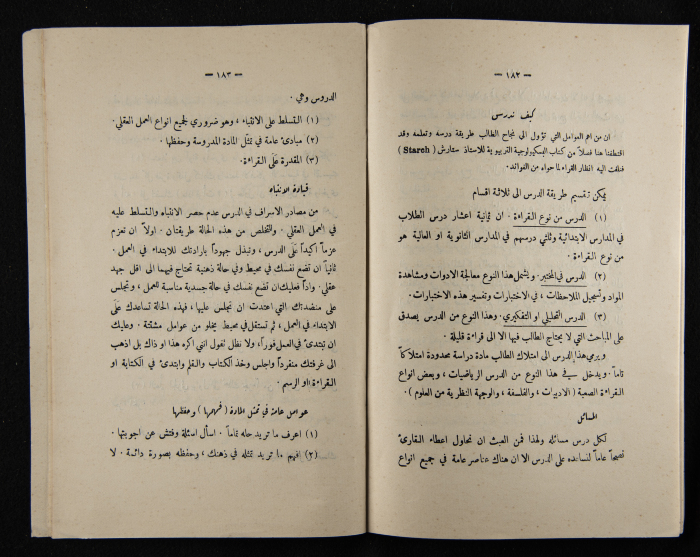 — ١٨٢ —
كيف ندرس
ان من اهم العوامل التي تؤول الى نجاح الطالب طريقة درسه وتعلمه وقد
اقتطفنا هنا فصلاً من كتاب البسكيولوجية التربيوية للاستاذ ستارش ( Starch )
فنلفت اليه انظار القراء لما حواه من الفوائد.
يمكن تقسيم طريقة الدرس الى ثلاثة اقسام
(١) الدرس من نوع القراءة . ان ثمانية اعشار درس الطلاب
في المدارس الابتدائية وثلثي درسهم في المدارس الثانوية او العالية هو
من نوع القراءة .
(٢) الدرس في المختبر . ويشتمل هذا النوع معالجة الادوات ومشاهدة
المواد وتسجيل الملاحظات ، في الاختبارات وتفسير هذه الاختبارات .
(٣) الدرس التحليلي او التفكيري . وهذا النوع من الدرس يصدق
على المباحث التي لا يحتاج الطالب فيها الا الى قراءة قليلة .
ويرمي هذا الدرس الى امتلاك الطالب مادة دراسة محدودة امتلاكاً
تاماً . ويدخل في هذا النوع من الدرس الرياضيات ، وبعض انواع
القراءة الصعبة ( الادبيات ، والفلسفة ، والوجهة النظرية من العلوم ) .
المسائل
لكل درس مسائله ولهذا فمن العبث ان نحاول اعطاء القارئ
نصحاً عاماً لنساعده على الدرس الا ان هناك عناصر عامة في جميع انواع
— ١٨٣ —
الدروس وهي .
(١) التسلط على الانتباه ، وهو ضروري لجميع انواع العمل العقلي .
(٢) مبادئ عامة في تمثل المادة المدروسة وحفظها .
(٣) المقدرة على القراءة .
قيادة الانتباه
من مصادر الاسراف في الدرس عدم حصر الانتباه والتسلط عليه
في العمل العقلي . وللتخلص من هذه الحالة طريقتان . اولاً ان تعزم
عزماً اكيداً على الدرس ، وتبذل جهوداً بارادتك للابتداء في العمل .
ثانياً ان تضع نفسك في محيط وفي حالة ذهنية تحتاج فيهما الى اقل جهد
عقلي . واذاً فعليك ان تضع نفسك في حالة جسدية مناسبة للعمل ، وتجلس
على منضدتك التي اعتدت ان تجلس عليها ، فهذه الحالة تساعدك على
الابتداء في العمل ، ثم تستقل في محيط يخلو من عوامل مشتتة . وعليك
ان تبتدئ في العمل فوراً ، ولا تظل تقول انني اكره هذا او ذاك بل اذهب
الى غرفتك منفرداً واجلس وخذ الكتاب والقلم وابتدئ في الكتابة او
القراءة او الرسم .
عوامل عامة في تمثل المادة ( فهمها ) وحفظها
(١) اعرف ما تريد حله تماماً . اسأل اسئلة وفتش عن اجوبتها .
(٢) افهم ما تريد تمثله في ذهنك ، وحفظه بصورة دائمة . لا